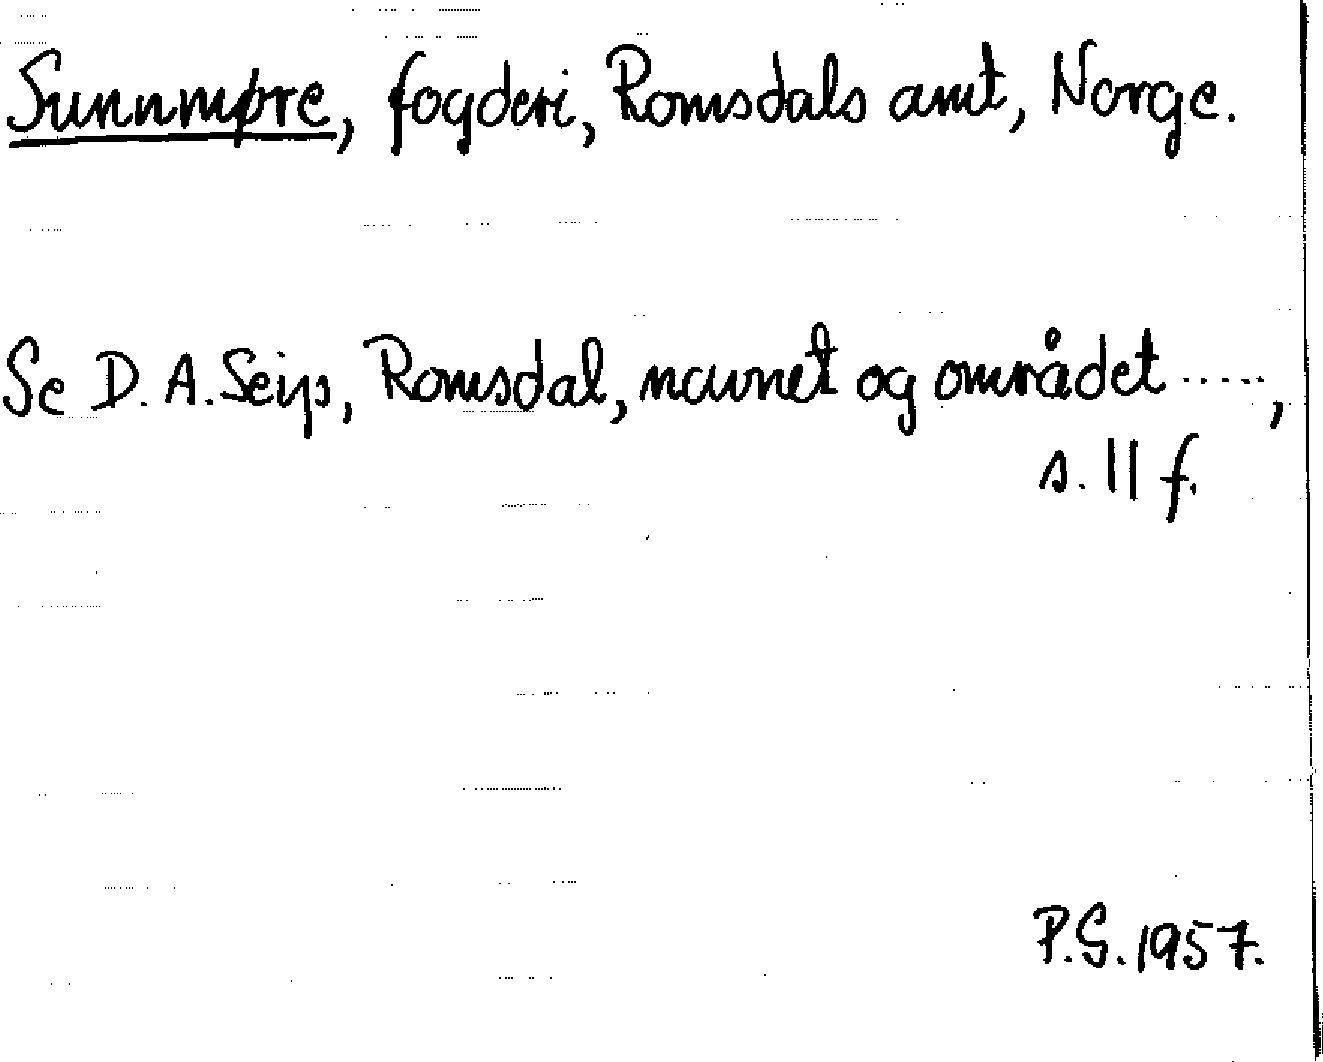 Sunnmøre, fogderi, Romsdals amt, Norge.
Se D. A. Seip, Romsdal, navnet og området .....,
s. 11 f.
P.S. 1957.